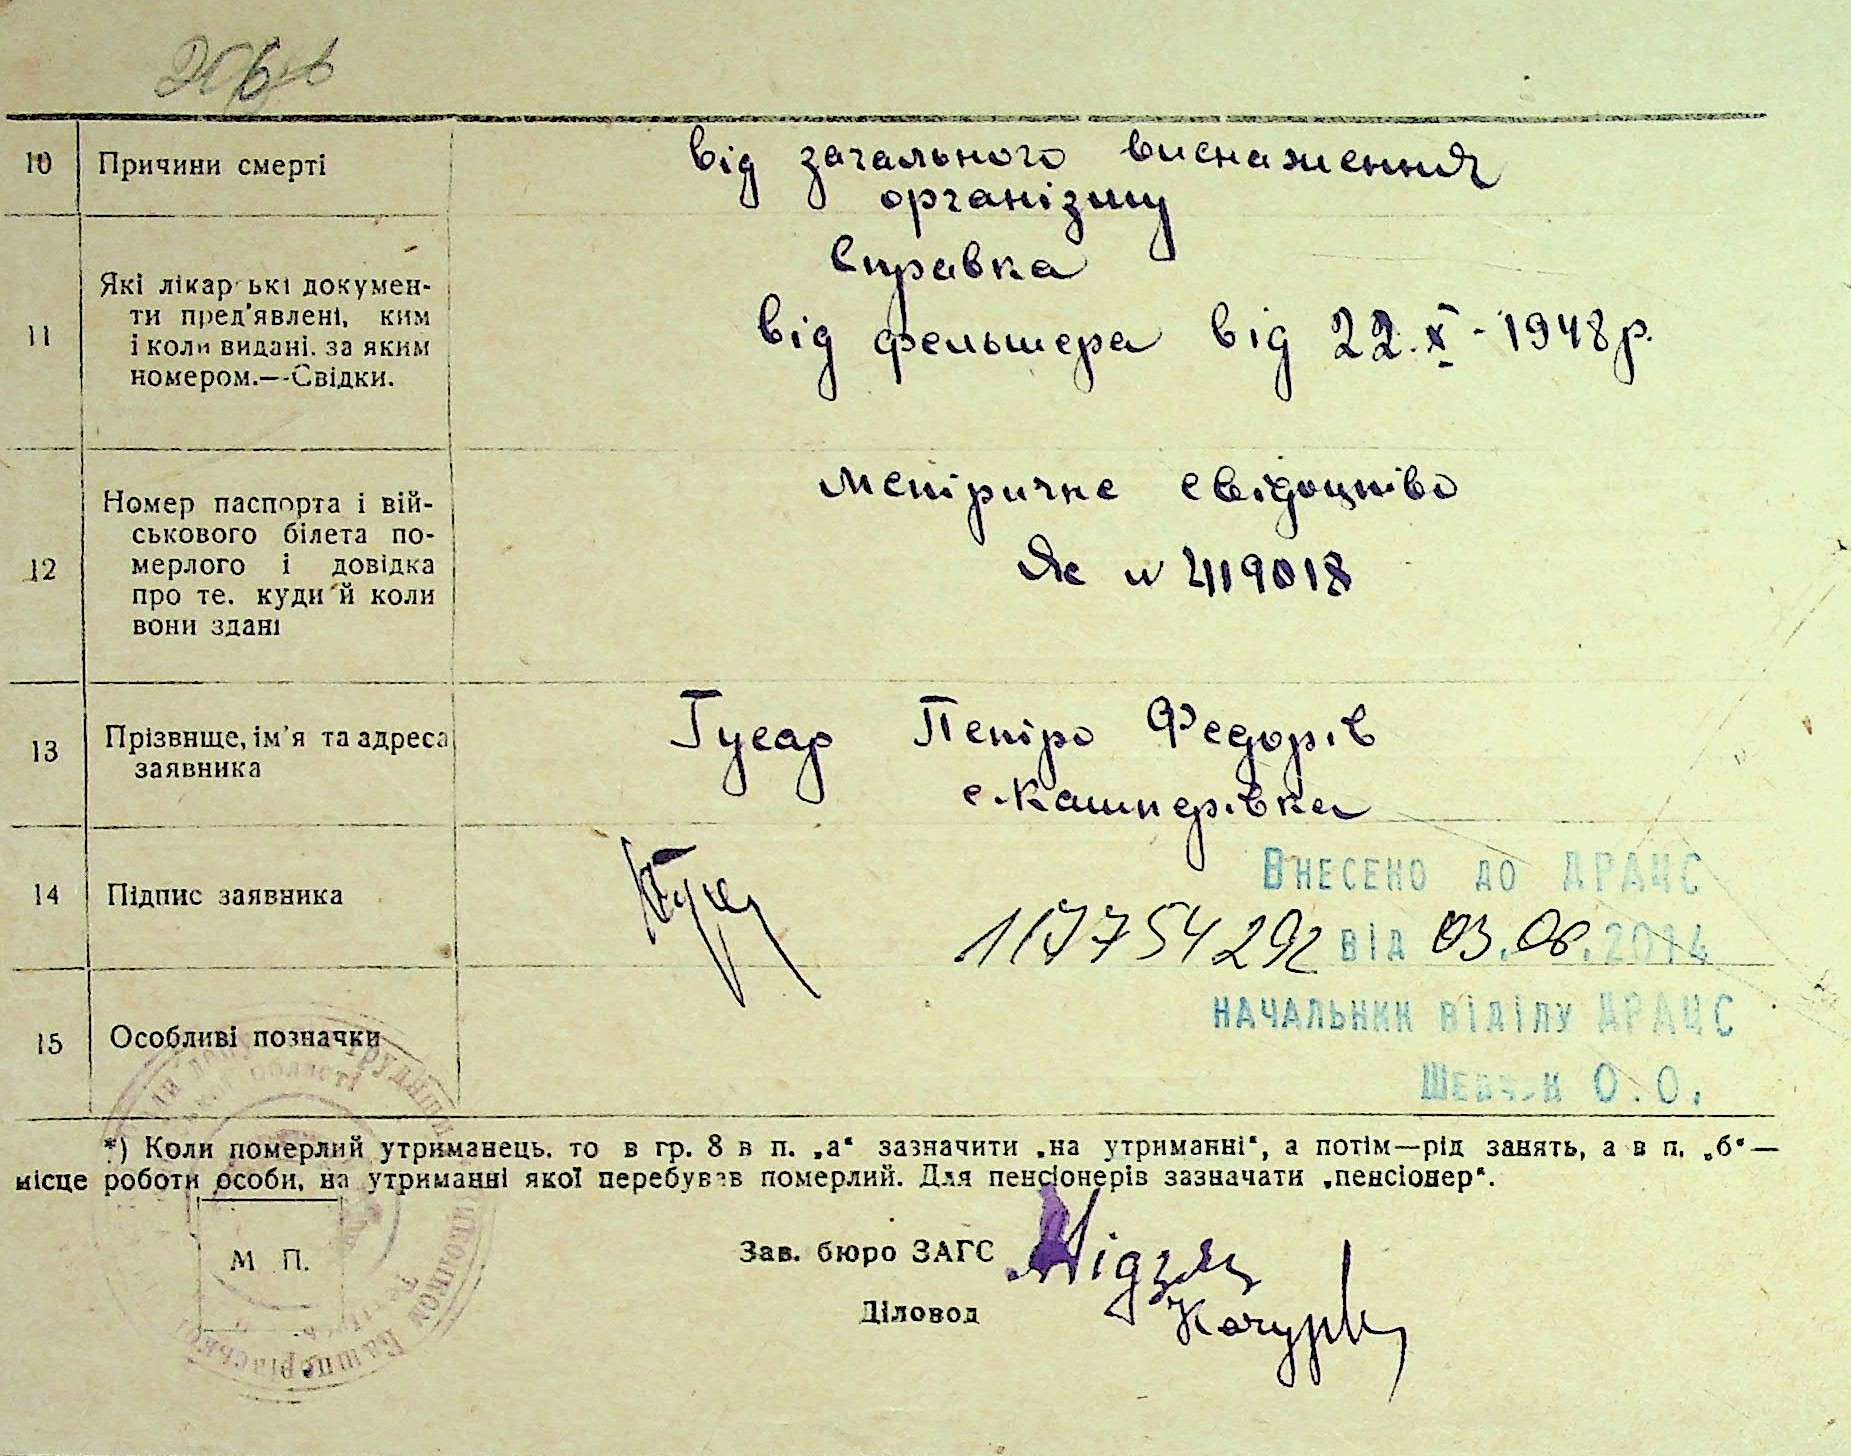 10 Причини смерті
від загального виснаження
організму
11 Які лікарські докумен-
ти пред'явлені, ким
і коли видані. за яким
номером.—Свідки.
Справка
від фельшера від 22.X-1948р.
12 Номер паспорта і вій-
ськового білета по-
мерлого і довідка
про те. куди й коли
вони здані
Метричне свідоцтво
№ 419018
13 Прізвище, ім'я та адреса
заявника
Гусар Петро Федорів
с.Кашперівка
14 Підпис заявника
Внесено до ДРАЦС
від 03.06.2014
15 Особливі позначки
начальник відділу ДРАЦС
Шевчук О.О.
*) Коли померлий утриманець. то в гр. 8 в п. „а“ зазначити „на утриманні“, а потім—рід занять, а в п. „б“—
місце роботи особи, на утриманні якої перебував померлий. Для пенсіонерів зазначати „пенсіонер“.
М П.
Зав. бюро ЗАГС
Діловод